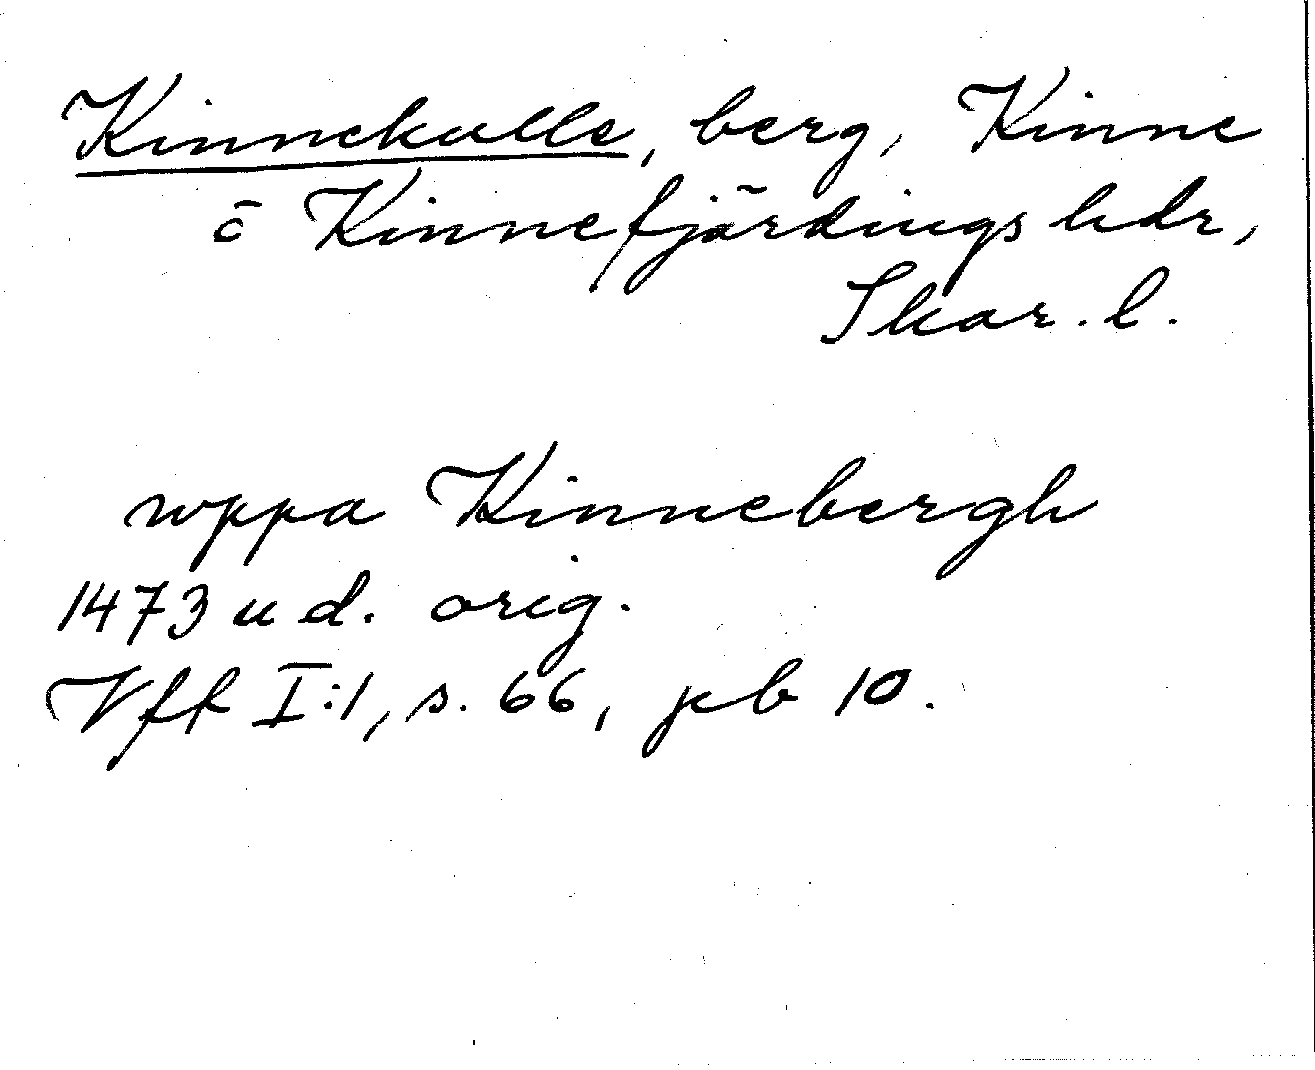 Kinnekulle, berg, Kinne
o Kinnefjärdings hdr,
Skar. l.
wppa Kinnebergh
1473 u d. orig.
Vfk I:1, s. 66, pb 10.